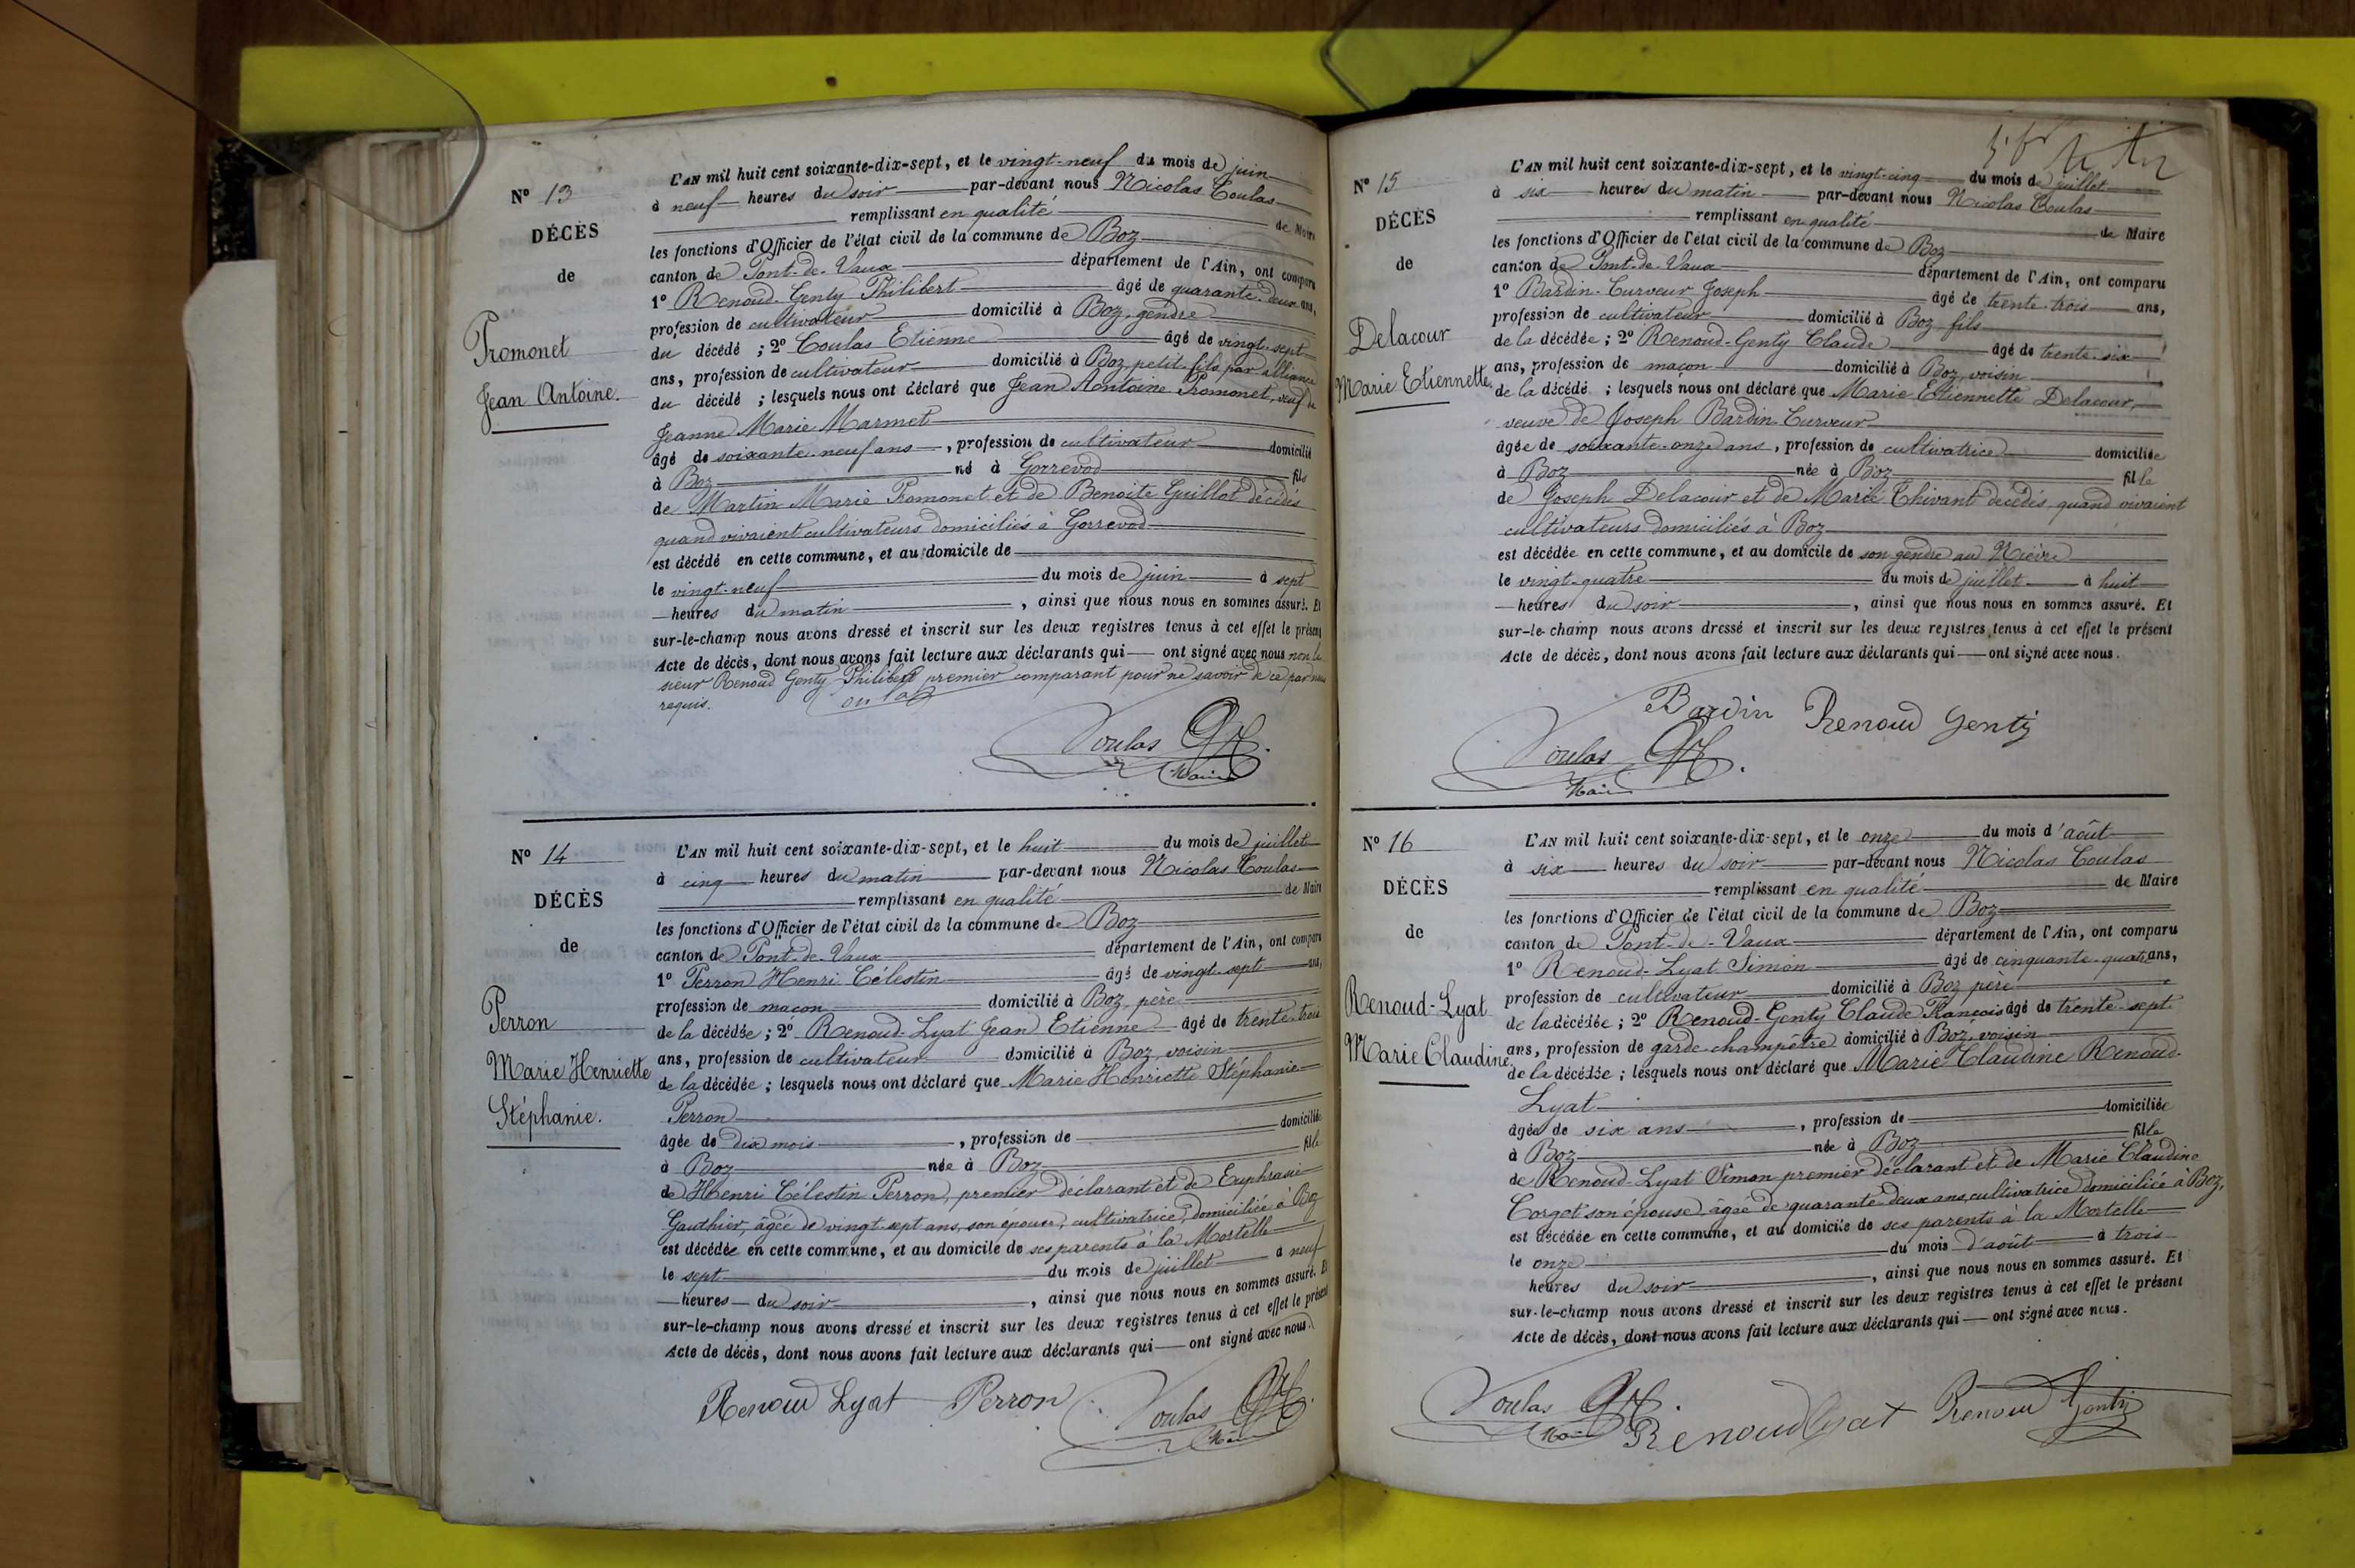 N° 13
DÉCÈS
de
Promonet
Jean Antoine.
L'AN mil huit cent soixante-dix-sept, et le vingt-neuf du mois de juin
à neuf heures du soir par-devant nous Nicolas Coulas
remplissant en qualité de Maire
les fonctions d'Officier de l'état civil de la commune de Boz
canton de Pont-de-Vaux département de l'Ain, ont comparu
1° Renoud-Genty Philibert âgé de quarante-deux ans,
profession de cultivateur domicilié à Boz, gendre
du décédé ; 2° Coulas Etienne âgé de vingt-sept
ans, profession de cultivateur domicilié à Boz, petit-fils par alliance
du décédé ; lesquels nous ont déclaré que Jean Antoine Promonet, veuf de
Jeanne Marie Marmet
âgé de soixante-neuf ans, profession de cultivateur domicilié
à Boz né à Gorrevod fils
de Martin Marie Promonet et de Benoite Guillot décédés
quand vivaient cultivateurs domiciliés à Gorrevod
est décédé en cette commune, et au domicile de
le vingt-neuf du mois de juin à sept
heures du matin, ainsi que nous nous en sommes assuré. Et
sur-le-champ nous avons dressé et inscrit sur les deux registres tenus à cet effet le présent
Acte de décès, dont nous avons fait lecture aux déclarants qui ont signé avec nous non le
sieur Renoud Genty Philibert premier comparant pour ne savoir de ce par nous
requis.
Coulas
Maire
N° 14
DÉCÈS
de
Perron
Marie Henriette
Stéphanie.
L'AN mil huit cent soixante-dix-sept, et le huit du mois de juillet
à cinq heures du matin par-devant nous Nicolas Coulas
remplissant en qualité de Maire
les fonctions d'Officier de l'état civil de la commune de Boz
canton de Pont-de-Vaux département de l'Ain, ont comparu
1° Perron Henri Célestin âgé de vingt-sept ans,
profession de maçon domicilié à Boz, père
de la décédée ; 2° Renoud-Lyat Jean Etienne âgé de trente-trois
ans, profession de cultivateur domicilié à Boz, voisin
de la décédée ; lesquels nous ont déclaré que Marie Henriette Stéphanie
Perron
âgée de dix mois, profession de domiciliée
à Boz née à Boz fille
de Henri Célestin Perron, premier déclarant et de Euphrasie
Gauthier, âgée de vingt-sept ans, son épouse, cultivatrice, domiciliée à Boz
est décédée en cette commune, et au domicile de ses parents à la Mortelle
le sept du mois de juillet à neuf
heures du soir, ainsi que nous nous en sommes assuré. Et
sur-le-champ nous avons dressé et inscrit sur les deux registres tenus à cet effet le présent
Acte de décès, dont nous avons fait lecture aux déclarants qui ont signé avec nous.
Renoud Lyat Perron Coulas
Maire
N° 15
DÉCÈS
de
Delacour
Marie Etiennette
L'AN mil huit cent soixante-dix-sept, et le vingt-cinq du mois de juillet
à six heures du matin par-devant nous Nicolas Coulas
remplissant en qualité de Maire
les fonctions d'Officier de l'état civil de la commune de Boz
canton de Pont-de-Vaux département de l'Ain, ont comparu
1° Bardin-Curveur Joseph âgé de trente-trois ans,
profession de cultivateur domicilié à Boz fils
de la décédée ; 2° Renoud-Genty Claude âgé de trente-six
ans, profession de maçon domicilié à Boz, voisin
de la décédé ; lesquels nous ont déclaré que Marie Etiennette Delacour,
veuve de Joseph Bardin-Curveur
âgée de soixante-onze ans, profession de cultivatrice domiciliée
à Boz née à Boz fille
de Joseph Delacour et de Marie Chivant décédés, quand vivaient
cultivateurs domiciliés à Boz
est décédée en cette commune, et au domicile de son gendre au Nièvre
le vingt-quatre du mois de juillet à huit
heures du soir, ainsi que nous nous en sommes assuré. Et
sur-le-champ nous avons dressé et inscrit sur les deux registres tenus à cet effet le présent
Acte de décès, dont nous avons fait lecture aux déclarants qui ont signé avec nous.
Bardin Renoud Genty
Coulas
Maire
N° 16
DÉCÈS
de
Renoud-Lyat
Marie Claudine
L'AN mil huit cent soixante-dix-sept, et le onze du mois d'août
à six heures du soir par-devant nous Nicolas Coulas
remplissant en qualité de Maire
les fonctions d'Officier de l'état civil de la commune de Boz
canton de Pont-de-Vaux département de l'Ain, ont comparu
1° Renoud-Lyat Simon âgé de cinquante-quatre ans,
profession de cultivateur domicilié à Boz père
de la décédée ; 2° Renoud-Genty Claude François âgé de trente-sept
ans, profession de garde-champêtre domicilié à Boz, voisin
de la décédée ; lesquels nous ont déclaré que Marie Claudine Renoud-
Lyat
âgée de six ans, profession de domiciliée
à Boz née à Boz fille
de Renoud-Lyat Simon premier déclarant et de Marie Claudine
Corgot son épouse âgée de quarante-deux ans, cultivatrice domiciliée à Boz,
est décédée en cette commune, et au domicile de ses parents à la Mortelle
le onze du mois d'août à trois
heures du soir, ainsi que nous nous en sommes assuré. Et
sur-le-champ nous avons dressé et inscrit sur les deux registres tenus à cet effet le présent
Acte de décès, dont nous avons fait lecture aux déclarants qui ont signé avec nous.
Coulas Renoud Lyat Renoud Genty
Maire